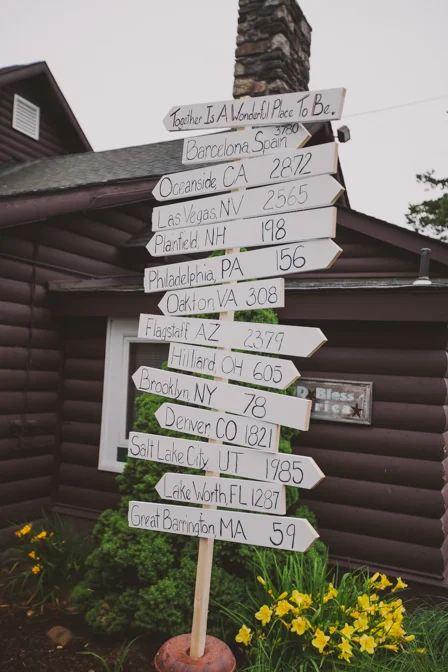 Together Is A Wonderful Place To Be.
Barcelona, Spain 3780
Oceanside, CA 2872
Las Vegas, NV 2565
Planfield, NH 198
Philadelphia, PA 156
Oakton, VA 308
Flagstaff AZ 2379
Hilliard, OH 605
Brooklyn, NY 78
Denver CO 1821
Salt Lake City, UT 1985
Lake Worth, FL 1287
Great Barrington, MA 59
Bless